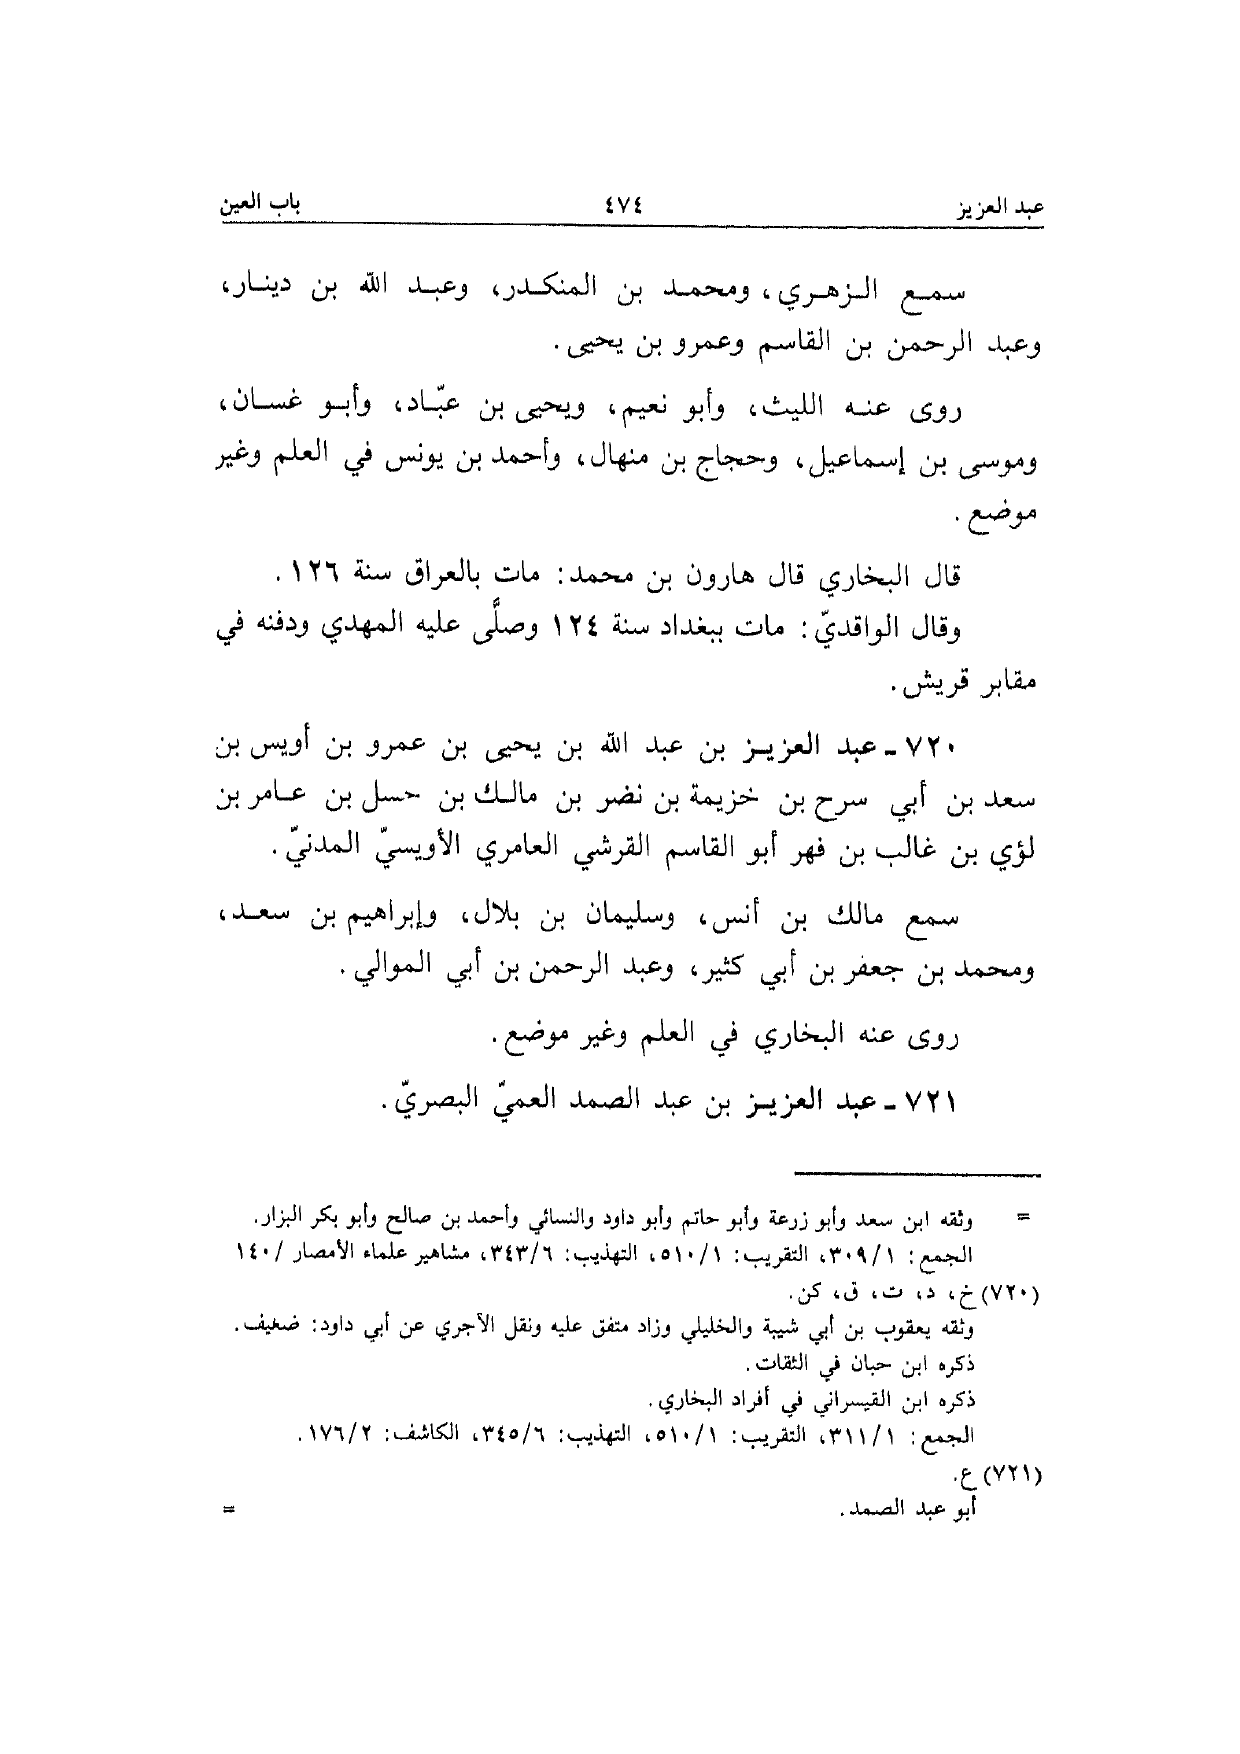 عبد العزيز ٤٧٤ باب العين
سمع الزهري، ومحمد بن المنكدر، وعبد الله بن دينار،
وعبد الرحمن بن القاسم وعمرو بن يحيى.
روى عنه الليث، وأبو نعيم، ويحيى بن عبّاد، وأبو غسان،
وموسى بن إسماعيل، وحجاج بن منهال، وأحمد بن يونس في العلم وغير
موضع.
قال البخاري قال هارون بن محمد: مات بالعراق سنة ١٢٦.
وقال الواقديّ: مات ببغداد سنة ١٢٤ وصلَّى عليه المهدي ودفنه في
مقابر قريش.
٧٢٠ ـ عبد العزيز بن عبد الله بن يحيى بن عمرو بن أويس بن
سعد بن أبي سرح بن خزيمة بن نضر بن مالك بن حسل بن عامر بن
لؤي بن غالب بن فهر أبو القاسم القرشي العامري الأويسيّ المدنيّ.
سمع مالك بن أنس، وسليمان بن بلال، وإبراهيم بن سعد،
ومحمد بن جعفر بن أبي كثير، وعبد الرحمن بن أبي الموالي.
روى عنه البخاري في العلم وغير موضع.
٧٢١ ـ عبد العزيز بن عبد الصمد العميّ البصريّ.
= وثقه ابن سعد وأبو زرعة وأبو حاتم وأبو داود والنسائي وأحمد بن صالح وأبو بكر البزار.
الجمع: ٣٠٩/١، التقريب: ٥١٠/١، التهذيب: ٣٤٣/٦، مشاهير علماء الأمصار /١٤٠
(٧٢٠) خ، د، ت، ق، كن.
وثقه يعقوب بن أبي شيبة والخليلي وزاد متفق عليه ونقل الآجري عن أبي داود: ضعيف.
ذكره ابن حبان في الثقات.
ذكره ابن القيسراني في أفراد البخاري.
الجمع: ٣١١/١، التقريب: ٥١٠/١، التهذيب: ٣٤٥/٦، الكاشف: ١٧٦/٢.
(٧٢١) ع.
أبو عبد الصمد. =